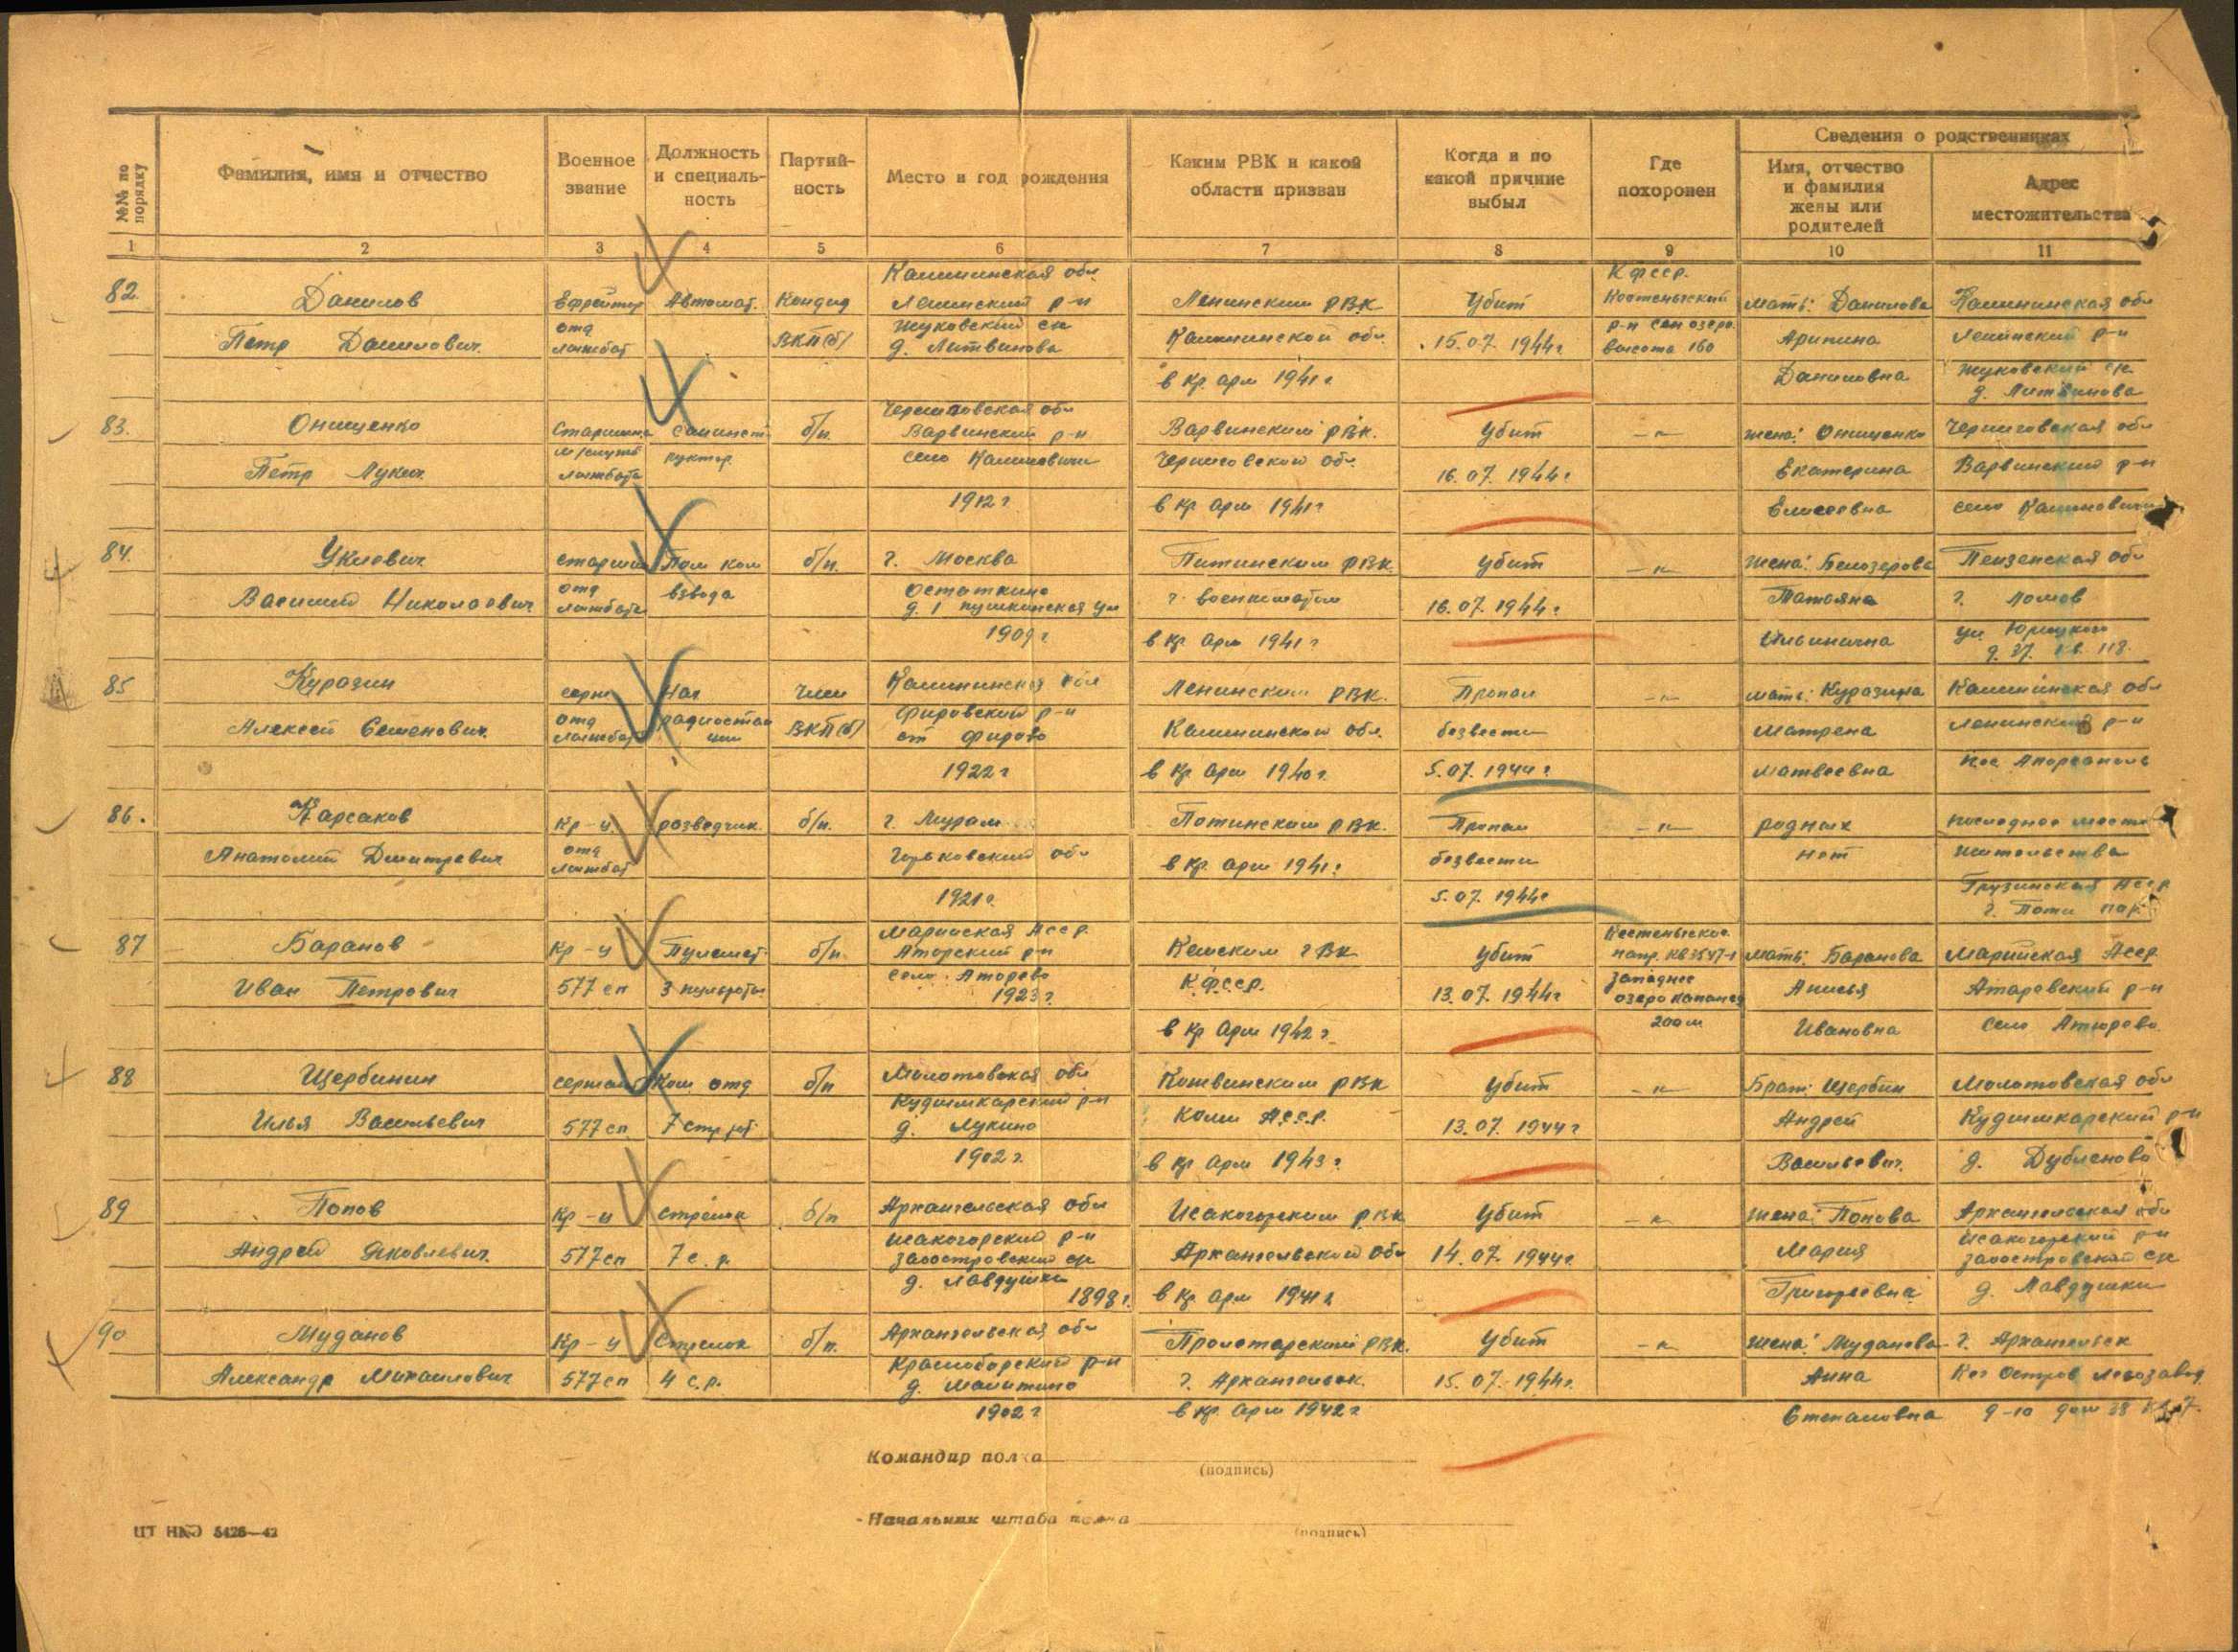 №№ по порядку
Фамилия, имя и отчество
Военное звание
Должность и специаль-ность
Партий-ность
Место и год рождения
Каким РВК и какой области призван
Когда и по какой причине выбыл
Где похоронен
Сведения о родственниках
Имя, отчество и фамилия жены или родителей
Адрес местожительства
1 2 3 4 5 6 7 8 9 10 11
Калининская обл К фсср.
82. Данилов Ефрейтор Автомат. Кандид Ленинский р-н Ленинским РВК Убит Кестеньгский мать: Данилова Калининская обл
Петр Данилович. отд лыжбат ВКП(б) Жуковский с/с д. Литвинова Калининской обл. 15.07.1944г р-н высота 160 Арипина Ленинский р-н
в кр. арм 1941г Даниловна Жуковский с/с д. Литвинова
Черниговская обл
83. Онищенко Старшина санинст- б/п. Варвинский р-н Варвинский РВК. Убит —"— жена: Онищенко Черниговская обл
Петр Лукич. м/службы лыжбата руктор. село Калиновичи Черниговской обл. 16.07.1944г Екатерина Варвинский р-н
1912г в кр арм 1941г Елисеевна село Калиновичи
84. Уклович. старшина Пом ком б/п. г. Москва Питинским РВК. Убит —"— жена: Белозерова Пензенская обл
Василий Николаевич отд лыжбата взвода Остаткино д. 1 пушкинская ул г. военкоматом 16.07.1944г Татьяна г. Ломов
1909г в кр арм 1941г Ильинична ул Юрицкого д. 37. кв. 118.
85 Куразин серж Нач Член Калининская обл Ленинским РВК. Пропал —"— мать: Куразина Калининская обл
Алексей Семенович. отд лыжбат радиостан ции ВКП(б) Фировский р-н ст Фирово Калининской обл. безвести Матрена Ленинский р-н
1922г в кр арм 1940г. 5.07.1944г Матвеевна
86. Карсаков Кр-ц. розведчик. б/п. г. Муром Потинским РВК. Пропал —"— родных последнее место
Анатолий Дмитревич отд лыжбат Горьковский обл в кр. арм 1941г безвести нет жительства
1921г. 5.07.1944г Грузинская Асср г. Поти
Марийская Асср. Кестеньгское
87 Баранов Кр-ц Пулемет. б/п. Аторский р-н Кемским гВк Убит напр. КВ 3547-1 мать: Баранова Марийская Асср
Иван Петрович 577 сп 3 пульрота село Аторево 1923г. К.ф.сср. 13.07.1944г западнее озеро Копанец Анисья Атаревский р-н
в кр арм 1942г 200м Ивановна село Атюрево.
88 Щербинин сержант Ком отд б/п Молотовская обл Косвинским рвк Убит —"— Брат: Щербин Молотовская обл
Илья Васильевич 577 сп. 7 стр рот. Кудымкарский р-н д. Лукино Коми А.с.с.р. 13.07.1944г Андрей Кудымкарский р-н
1902г. в кр арм 1943г Васильевич. д. Дубленово
89 Попов Кр-ц стрелок б/п Архангельская обл Исакогорским рвк Убит —"— жена: Попова Архангельская обл
Андрей Яковлевич. 577 сп 7 с. р. Исакогорский р-н Заостровский с/с д. Лавдушки Архангельской обл 14.07.1944г. Мария Исакогорский р-н Заостровский с/с
1898г. в кр арм 1941г Григорьевна д. Лавдушки
90 Муданов Кр-ц Стрелок б/п. Архангельская обл Пролетарский РВК. Убит —"— жена: Муданова г. Архангельск
Александр Михаилович 577 сп 4 с.р. Красноборский р-н д. Малитино г. Архангельск. 15.07.1944г. Анна Кег Остров лесозавод
1902г в кр. арм 1942г Степановна 9-10 дом 38 кв. 7.
Командир полка
(подпись)
Начальник штаба полка
(подпись)
ЦТ НКО 5426—42